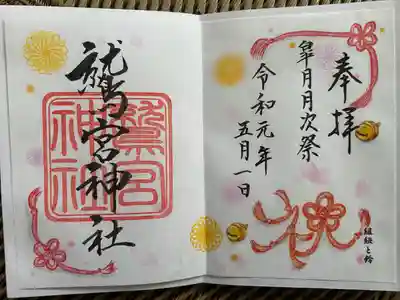 奉拝
皐月月次祭
令和元年
五月一日
組紐と鈴
鷲宮神社
鷲宮
神社